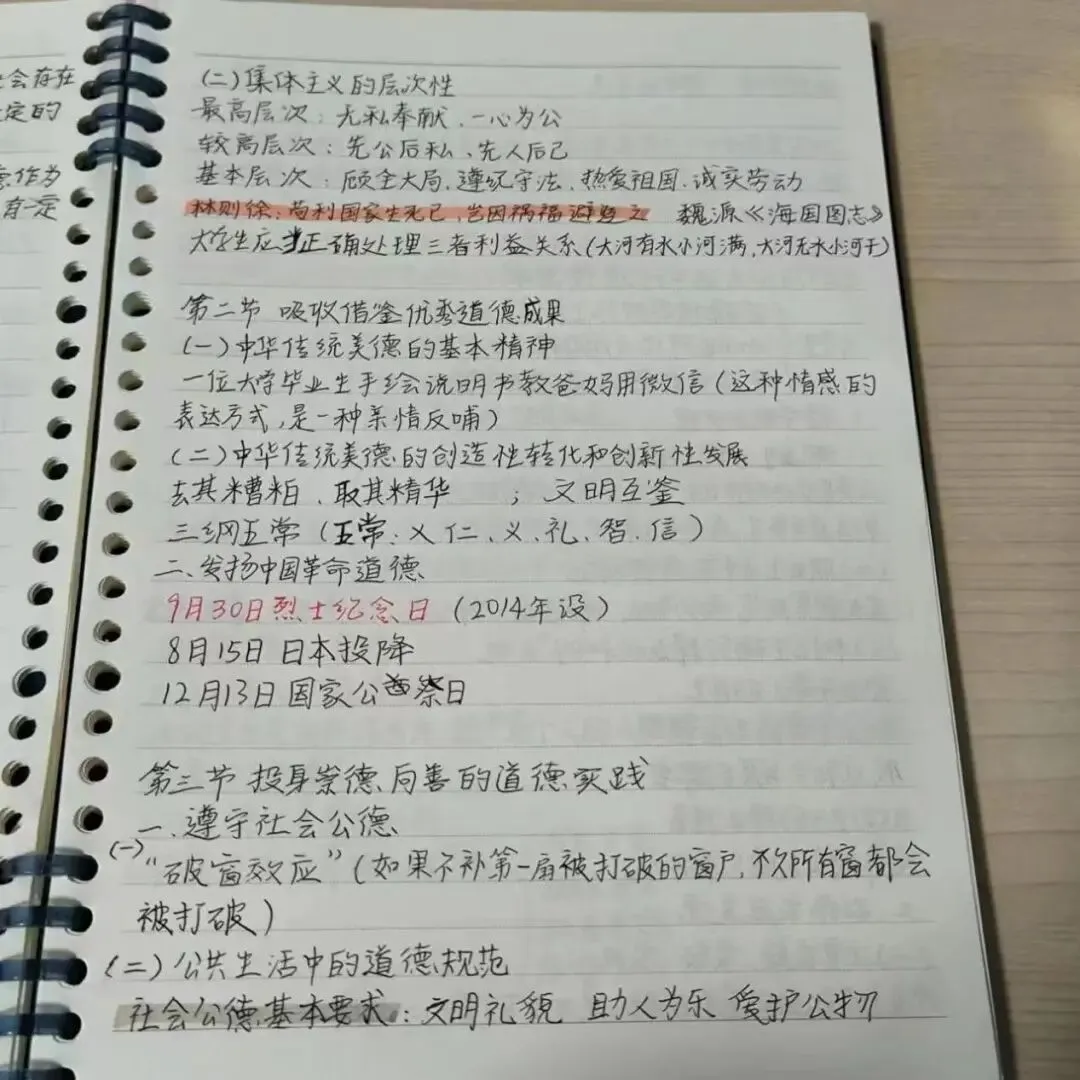 会存在
定的
作为
有一定
(二)集体主义的层次性
最高层次：无私奉献、一心为公
较高层次：先公后私、先人后己
基本层次：顾全大局、遵纪守法、热爱祖国、诚实劳动
林则徐：苟利国家生死已，岂因祸福避趋之 魏源《海国图志》
大学生应当正确处理三者利益关系(大河有水小河满，大河无水小河干)
第二节 吸收借鉴优秀道德成果
(一)中华传统美德的基本精神
一位大学毕业生手绘说明书教爸妈用微信(这种情感的
表达方式，是一种亲情反哺)
(二)中华传统美德的创造性转化和创新性发展
去其糟粕、取其精华 ；文明互鉴
三纲五常(五常：义仁、义、礼、智、信)
二、发扬中国革命道德
9月30日烈士纪念日(2014年设)
8月15日日本投降
12月13日国家公祭日
第三节 投身崇德向善的道德实践
一、遵守社会公德
(一)"破窗效应"(如果不补第一扇被打破的窗户，不久所有窗都会
被打破)
(二)公共生活中的道德规范
社会公德基本要求：文明礼貌 助人为乐 爱护公物